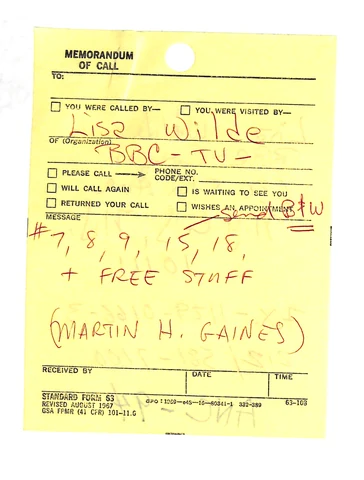 MEMORANDUM
OF CALL
TO:
YOU WERE CALLED BY— YOU WERE VISITED BY—
Lisa Wilde
OF (Organization)
BBC-TU-
PLEASE CALL PHONE NO.
CODE/EXT.
WILL CALL AGAIN IS WAITING TO SEE YOU
RETURNED YOUR CALL WISHES AN APPOINTMENT
send B&W
MESSAGE
#7, 8, 9, 15, 18,
+ FREE STUFF
(MARTIN H. GAINES)
RECEIVED BY DATE TIME
STANDARD FORM 63
REVISED AUGUST 1967
GSA FPMR (41 CFR) 101-11.6
GPO : 1969—o45—16—80341-1 332-389
63-108